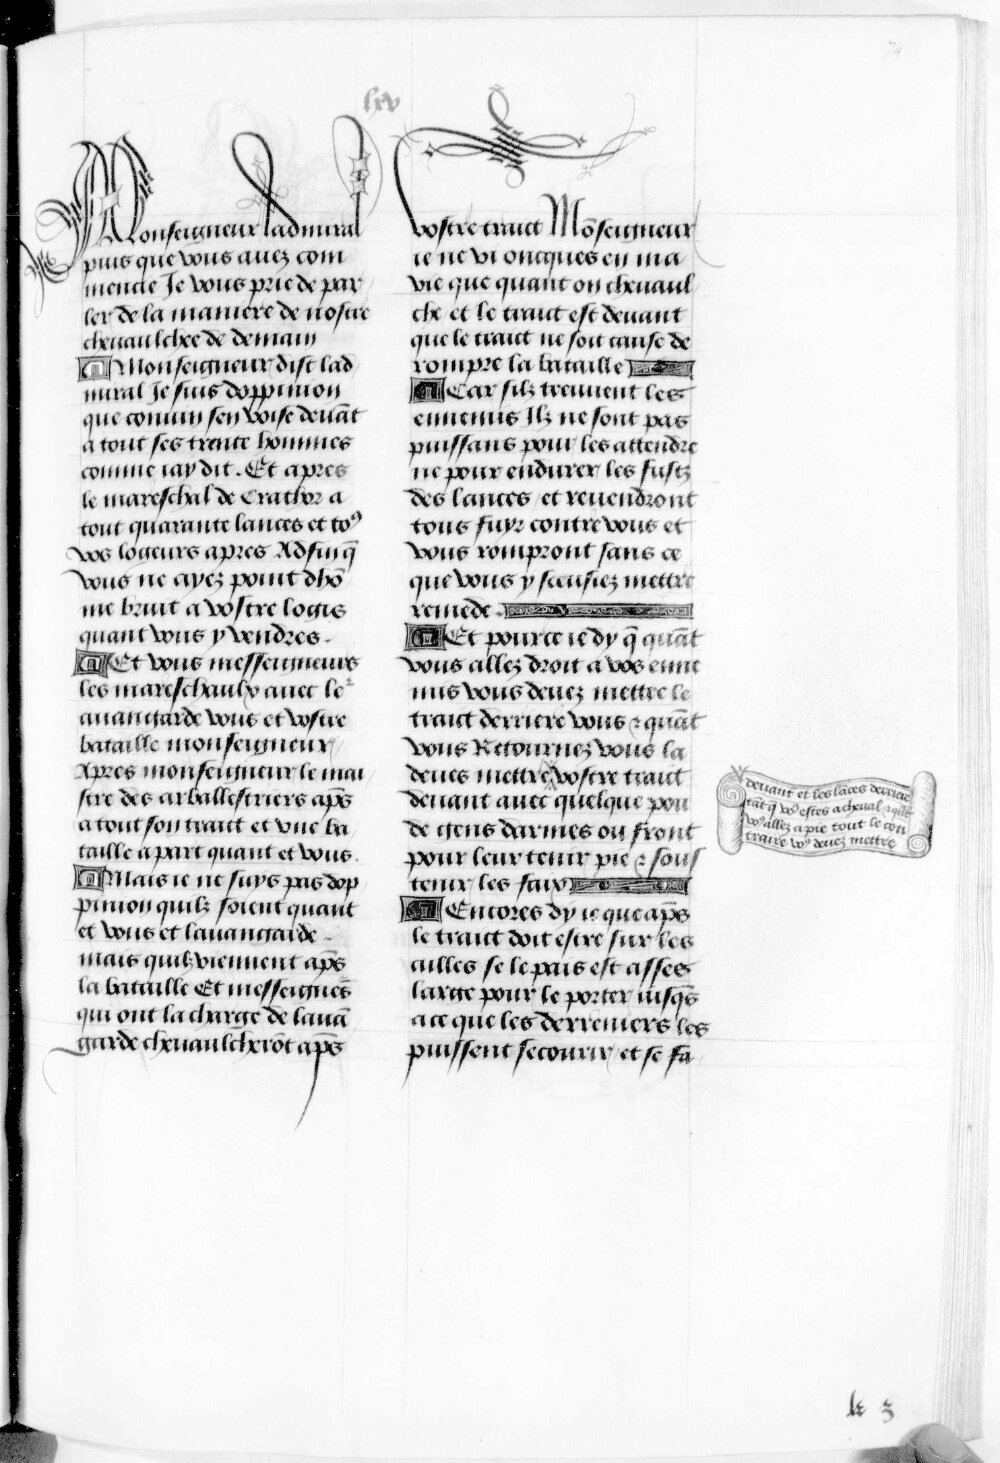 74
lxv
Monseigneur ladmiral
puis que vous avez com
mencie Je vous prie de par
ler de la maniere de nostre
chevaulchee de demain
Monseigneur dist lad
miral Je suis doppinion
que convin sen voise devāt
a tout ses trente hommes
comme iay dit. Et apres
le mareschal de Crathor a
tout quarante lances et to9
vos logeurs apres Adfin q̄
vous ne ayez point dhō
me bruit a vostre logis
quant vous y vendres.
Et vous messeigneurs
les mareschaulx avec le
avangarde vous et vostre
bataille monseigneur
Apres monseigneur le mai
stre des arballestriers ap̄s
a tout son traict et une ba
taille a part quant et vous.
Mais ie ne suys pas dop
pinion quilz soient quant
et vous et lavangarde.
mais quilz viennent ap̄s
la bataille Et messeignēs
qui ont la charge de lavā
garde chevaulcherōt ap̄s
vostre traict Mōseigneur
ie ne vi oncques en ma
vie que quant on chevaul
che et le traict est devant
que le traict ne soit cause de
rompre la bataille
Car silz treuvent les
ennemis Ilz ne sont pas
puissans pour les attendre
ne pour endurer les fustz
des lances et revendront
tous fuyr contre vous et
vous rompront sans ce
que vous y sceusiez mettre
remede.
Et pource ie dy q̄ quāt
vous allez droit a vos enne
mis vous devez mettre le
traict derriere vous ⁊ quāt
vous Retournez vous la
deves mettre vostre traict
devant avec quelque pou
de gens darmes ou front
pour leur tenir pie ⁊ sous
tenir les faix
Encores dy ie que ap̄s
le traict doit estre sur les
ailles se le pais est asses
large pour le porter iusq̄s
a ce que les derreniers les
puissent secourir et se fa
devant et les lāces derriere
tāt q̄ vo9 estes a cheval ⁊ q̄nt
vo9 allez a pie tout le con
traire vo9 devez mettre